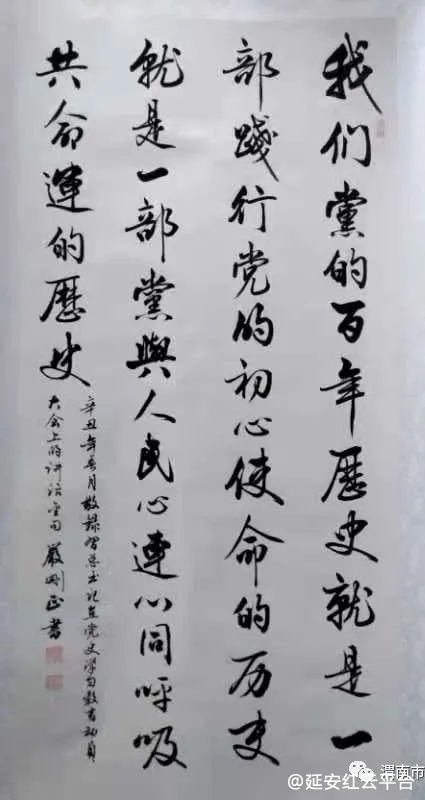 我们黨的百年歷史就是一
部踐行党的初心使命的历史
就是一部黨與人民心連心同呼吸
共命運的歷史
辛丑年春月敬録習总书记在党史学习教育动员
大会上的讲话金句 嚴刚正書
渭南市
@延安红云平台